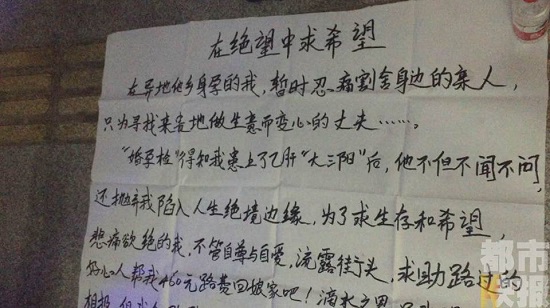 在绝望中求希望
在异地他乡身孕的我，暂时忍痛割舍身边的亲人，
只为寻找来贵地做生意而变心的丈夫……。
"婚孕检"得知我患上了乙肝"大三阳"后，他不但不闻不问，
还抛弃我陷入人生绝境边缘，为了求生存和希望，
悲痛欲绝的我，不管自尊与自爱，流露街头，求助路过的
好心人帮我460元路费回娘家吧！滴水之恩
相报
都市